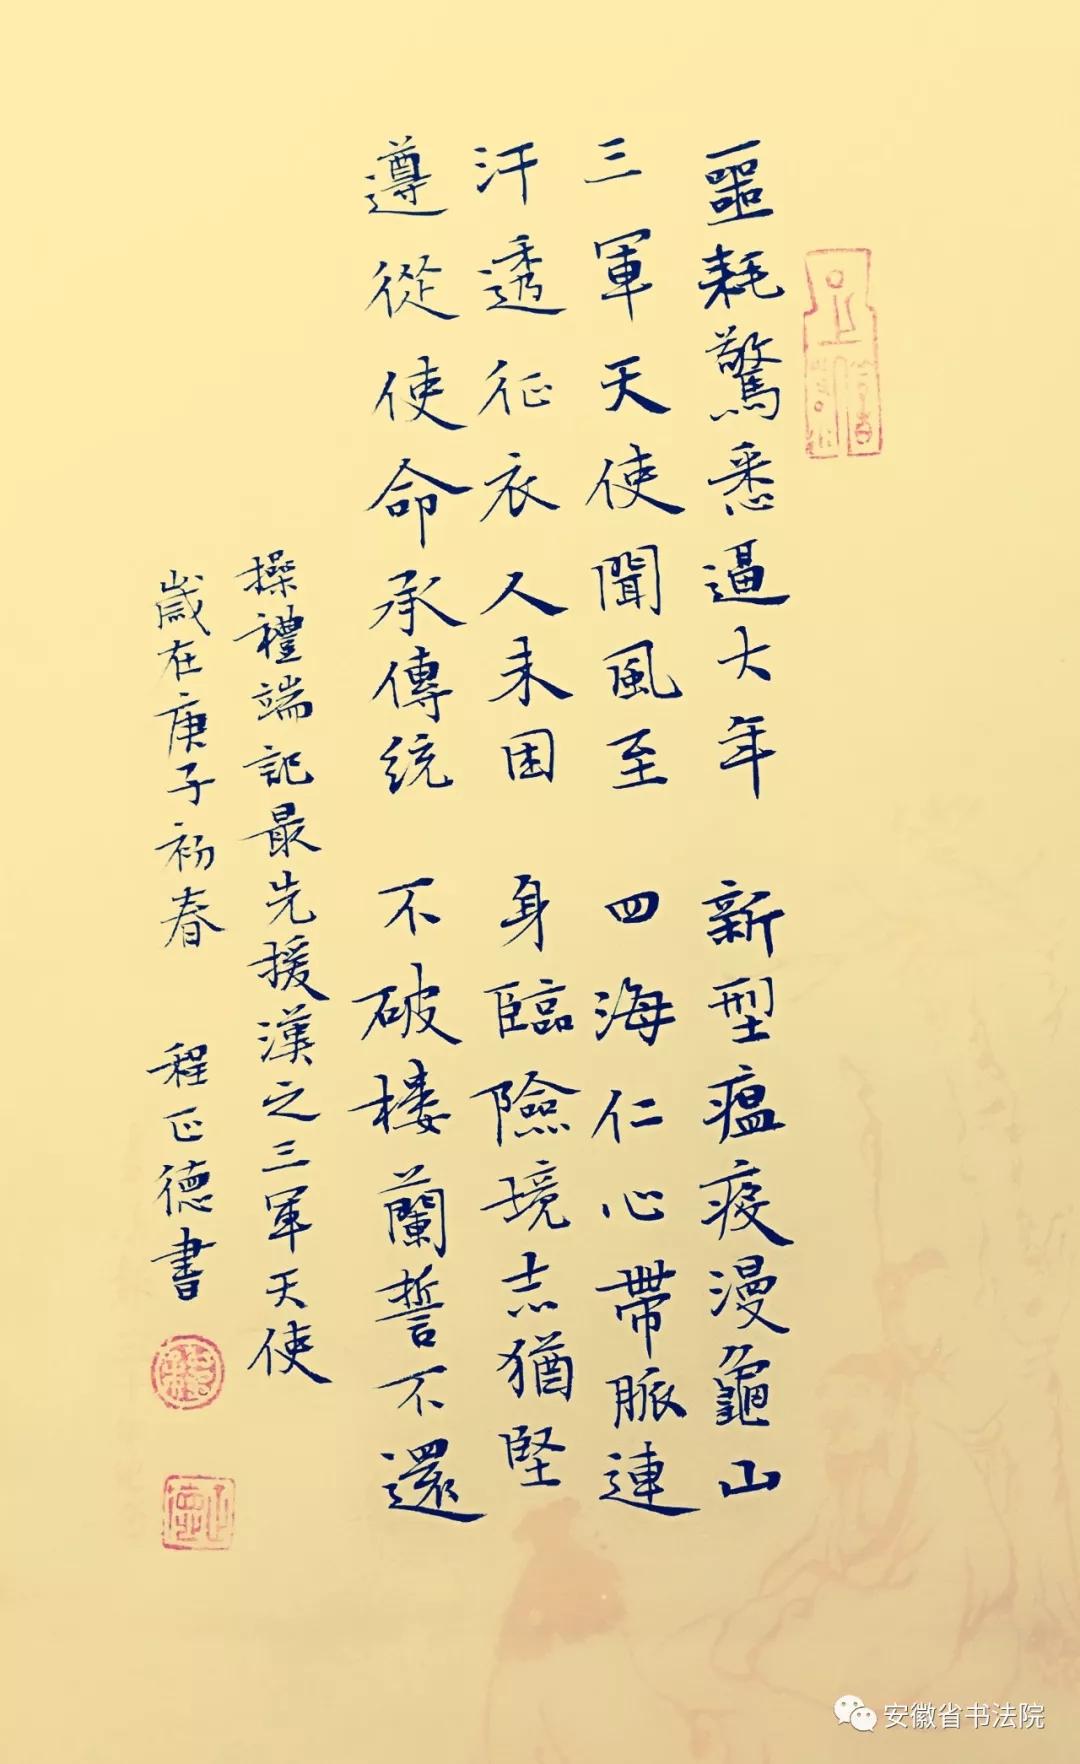 噩耗驚悉逼大年 新型瘟疫漫龜山
三軍天使聞風至 四海仁心帶脈連
汗透征衣人未困 身臨險境志猶堅
遵從使命承傳統 不破樓蘭誓不還
操禮端記最先援漢之三軍天使
歲在庚子初春 程正德書
安徽省书法院